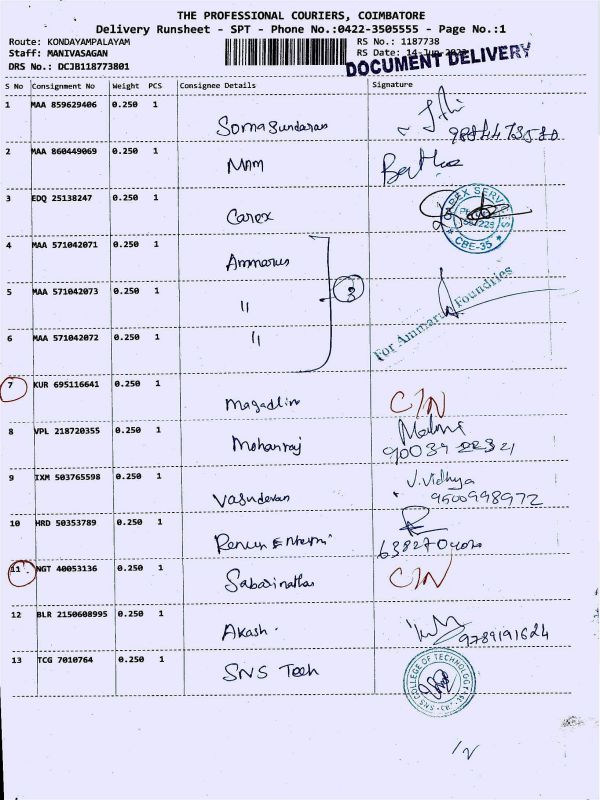 THE PROFESSIONAL COURIERS, COIMBATORE
Delivery Runsheet - SPT - Phone No.:0422-3505555 - Page No.:1
Route: KONDAYAMPALAYAM RS No.: 1187738
Staff: MANIVASAGAN RS Date: 14-Jun-2022
DRS No.: DCJB118773801 DOCUMENT DELIVERY
S No Consignment No Weight PCS Consignee Details Signature
1 MAA 859629406 0.250 1 Somasundaram
2 MAA 860449069 0.250 1 MAM
3 EDQ 25138247 0.250 1 Carex
CBE-35
4 MAA 571042071 0.250 1 Ammarus
5 MAA 571042073 0.250 1 " 3
For Ammarun Foundries
6 MAA 571042072 0.250 1 "
7 KUR 695116641 0.250 1 Magadlin C/N
8 VPL 218720355 0.250 1 Mohanraj
9 IXM 503765598 0.250 1 Vasudevan V.Vidhya
9500998972
10 HRD 50353789 0.250 1
11 NGT 40053136 0.250 1 Sabarinathan C/N
12 BLR 2150608995 0.250 1 Akash. 9789191624
13 TCG 7010764 0.250 1 SNS Tech
SNS COLLEGE OF TECHNOLOGY